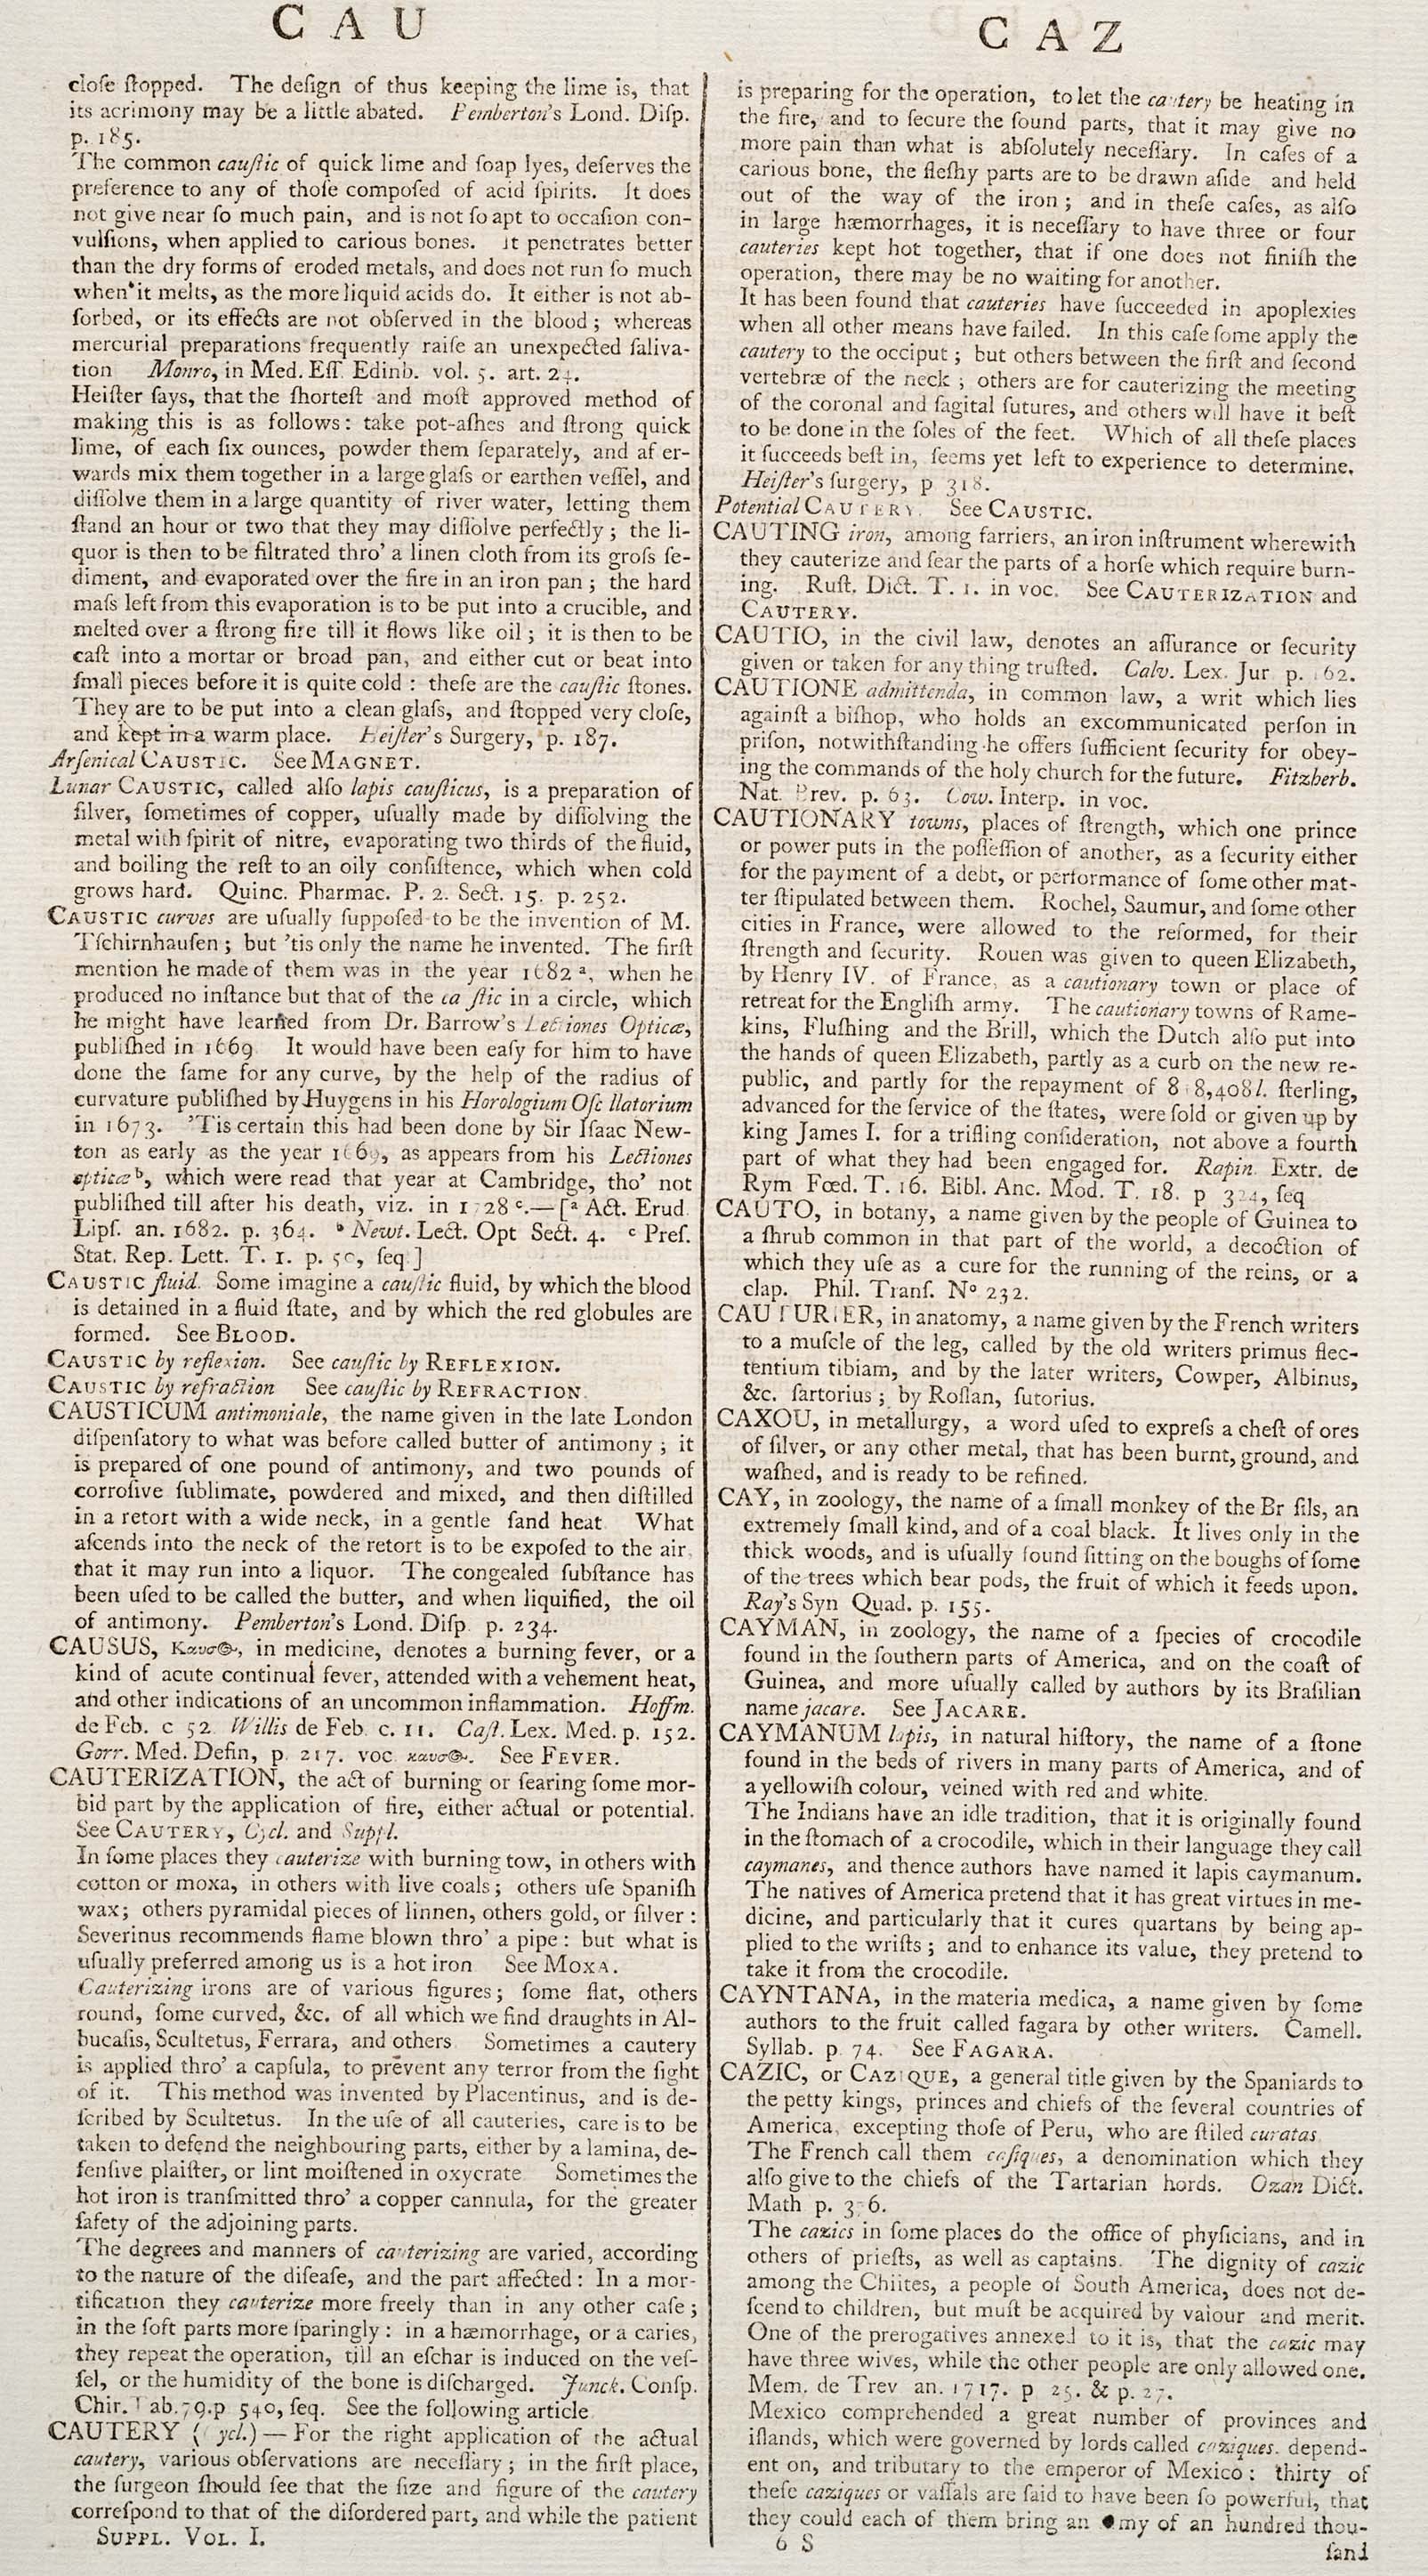 C A U
cloſe ſtopped. The deſign of thus keeping the lime is, that
its acrimony may be a little abated. Pemberton's Lond. Diſp.
p. 185.
The common cauſtic of quick lime and ſoap lyes, deſerves the
preference to any of thoſe compoſed of acid ſpirits. It does
not give near ſo much pain, and is not ſo apt to occaſion con-
vulſions, when applied to carious bones. It penetrates better
than the dry forms of eroded metals, and does not run ſo much
when it melts, as the more liquid acids do. It either is not ab-
ſorbed, or its effects are not obſerved in the blood; whereas
mercurial preparations frequently raiſe an unexpected ſaliva-
tion Monro, in Med. Eſſ Edinb. vol. 5. art. 24.
Heiſter ſays, that the ſhorteſt and moſt approved method of
making this is as follows: take pot-aſhes and ſtrong quick
lime, of each ſix ounces, powder them ſeparately, and af er-
wards mix them together in a large glaſs or earthen veſſel, and
diſſolve them in a large quantity of river water, letting them
ſtand an hour or two that they may diſſolve perfectly; the li-
quor is then to be filtrated thro' a linen cloth from its groſs ſe-
diment, and evaporated over the fire in an iron pan; the hard
maſs left from this evaporation is to be put into a crucible, and
melted over a ſtrong fire till it flows like oil; it is then to be
caſt into a mortar or broad pan, and either cut or beat into
ſmall pieces before it is quite cold: theſe are the cauſtic ſtones.
They are to be put into a clean glaſs, and ſtopped very cloſe,
and kept in a warm place. Heiſter's Surgery, p. 187.
Arſenical CAUSTIC. See MAGNET.
Lunar CAUSTIC, called alſo lapis cauſticus, is a preparation of
ſilver, ſometimes of copper, uſually made by diſſolving the
metal with ſpirit of nitre, evaporating two thirds of the fluid,
and boiling the reſt to an oily conſiſtence, which when cold
grows hard. Quinc. Pharmac. P. 2. Sect. 15. p. 252.
CAUSTIC curves are uſually ſuppoſed to be the invention of M.
Tſchirnhauſen; but 'tis only the name he invented. The firſt
mention he made of them was in the year 1682 ᵃ, when he
produced no inſtance but that of the ca ſtic in a circle, which
he might have learned from Dr. Barrow's Lectiones Opticæ,
publiſhed in 1669 It would have been eaſy for him to have
done the ſame for any curve, by the help of the radius of
curvature publiſhed by Huygens in his Horologium Oſc llatorium
in 1673. 'Tis certain this had been done by Sir Iſaac New-
ton as early as the year 1669, as appears from his Lectiones
opticæ ᵇ, which were read that year at Cambridge, tho' not
publiſhed till after his death, viz. in 1728 ᶜ.—[ᵃ Act. Erud.
Lipſ. an. 1682. p. 364. ᵇ Newt. Lect. Opt Sect. 4. ᶜ Pref.
Stat. Rep. Lett. T. 1. p. 50, ſeq ]
CAUSTIC fluid. Some imagine a cauſtic fluid, by which the blood
is detained in a fluid ſtate, and by which the red globules are
formed. See BLOOD.
CAUSTIC by reflexion. See cauſtic by REFLEXION.
CAUSTIC by refraction See cauſtic by REFRACTION.
CAUSTICUM antimoniale, the name given in the late London
diſpenſatory to what was before called butter of antimony; it
is prepared of one pound of antimony, and two pounds of
corroſive ſublimate, powdered and mixed, and then diſtilled
in a retort with a wide neck, in a gentle ſand heat What
aſcends into the neck of the retort is to be expoſed to the air,
that it may run into a liquor. The congealed ſubſtance has
been uſed to be called the butter, and when liquified, the oil
of antimony. Pemberton's Lond. Diſp. p. 234.
CAUSUS, Καυσ@, in medicine, denotes a burning fever, or a
kind of acute continual fever, attended with a vehement heat,
and other indications of an uncommon inflammation. Hoffm.
de Feb. c 52 Willis de Feb. c. 11. Caſt. Lex. Med. p. 152.
Gorr. Med. Defin, p. 217. voc καυσ@. See FEVER.
CAUTERIZATION, the act of burning or ſearing ſome mor-
bid part by the application of fire, either actual or potential.
See CAUTERY, Cycl. and Suppl.
In ſome places they cauterize with burning tow, in others with
cotton or moxa, in others with live coals; others uſe Spaniſh
wax; others pyramidal pieces of linnen, others gold, or ſilver:
Severinus recommends flame blown thro' a pipe: but what is
uſually preferred among us is a hot iron See MOXA.
Cauterizing irons are of various figures; ſome flat, others
round, ſome curved, &c. of all which we find draughts in Al-
bucaſis, Scultetus, Ferrara, and others Sometimes a cautery
is applied thro' a capſula, to prevent any terror from the ſight
of it. This method was invented by Placentinus, and is de-
ſcribed by Scultetus. In the uſe of all cauteries, care is to be
taken to defend the neighbouring parts, either by a lamina, de-
fenſive plaiſter, or lint moiſtened in oxycrate Sometimes the
hot iron is tranſmitted thro' a copper cannula, for the greater
ſafety of the adjoining parts.
The degrees and manners of cauterizing are varied, according
to the nature of the diſeaſe, and the part affected: In a mor-
tification they cauterize more freely than in any other caſe;
in the ſoft parts more ſparingly: in a hæmorrhage, or a caries,
they repeat the operation, till an eſchar is induced on the veſ-
ſel, or the humidity of the bone is diſcharged. Junck. Conſp.
Chir. Tab. 79. p 540, ſeq. See the following article
CAUTERY (Cycl.)—For the right application of the actual
cautery, various obſervations are neceſſary; in the firſt place,
the ſurgeon ſhould ſee that the ſize and figure of the cautery
correſpond to that of the diſordered part, and while the patient
SUPPL. VOL. I.
C A Z
is preparing for the operation, to let the cautery be heating in
the fire, and to ſecure the ſound parts, that it may give no
more pain than what is abſolutely neceſſary. In caſes of a
carious bone, the fleſhy parts are to be drawn aſide and held
out of the way of the iron; and in theſe caſes, as alſo
in large hæmorrhages, it is neceſſary to have three or four
cauteries kept hot together, that if one does not finiſh the
operation, there may be no waiting for another.
It has been found that cauteries have ſucceeded in apoplexies
when all other means have failed. In this caſe ſome apply the
cautery to the occiput; but others between the firſt and ſecond
vertebræ of the neck; others are for cauterizing the meeting
of the coronal and ſagital ſutures, and others will have it beſt
to be done in the ſoles of the feet. Which of all theſe places
it ſucceeds beſt in, ſeems yet left to experience to determine.
Heiſter's ſurgery, p 318.
Potential CAUTERY. See CAUSTIC.
CAUTING iron, among farriers, an iron inſtrument wherewith
they cauterize and ſear the parts of a horſe which require burn-
ing. Ruſt. Dict. T. 1. in voc. See CAUTERIZATION and
CAUTERY.
CAUTIO, in the civil law, denotes an aſſurance or ſecurity
given or taken for any thing truſted. Calv. Lex. Jur p. 162.
CAUTIONE admittenda, in common law, a writ which lies
againſt a biſhop, who holds an excommunicated perſon in
priſon, notwithſtanding he offers ſufficient ſecurity for obey-
ing the commands of the holy church for the future. Fitzherb.
Nat. Brev. p. 63. Cow. Interp. in voc.
CAUTIONARY towns, places of ſtrength, which one prince
or power puts in the poſſeſſion of another, as a ſecurity either
for the payment of a debt, or performance of ſome other mat-
ter ſtipulated between them. Rochel, Saumur, and ſome other
cities in France, were allowed to the reformed, for their
ſtrength and ſecurity. Rouen was given to queen Elizabeth,
by Henry IV. of France, as a cautionary town or place of
retreat for the Engliſh army. The cautionary towns of Rame-
kins, Fluſhing and the Brill, which the Dutch alſo put into
the hands of queen Elizabeth, partly as a curb on the new re-
public, and partly for the repayment of 8 8,408l. ſterling,
advanced for the ſervice of the ſtates, were ſold or given up by
king James I. for a trifling conſideration, not above a fourth
part of what they had been engaged for. Rapin. Extr. de
Rym Fœd. T. 16. Bibl. Anc. Mod. T. 18. p 324, ſeq
CAUTO, in botany, a name given by the people of Guinea to
a ſhrub common in that part of the world, a decoction of
which they uſe as a cure for the running of the reins, or a
clap. Phil. Tranſ. Nº 232.
CAUTURIER, in anatomy, a name given by the French writers
to a muſcle of the leg, called by the old writers primus flec-
tentium tibiam, and by the later writers, Cowper, Albinus,
&c. ſartorius; by Roſſan, ſutorius.
CAXOU, in metallurgy, a word uſed to expreſs a cheſt of ores
of ſilver, or any other metal, that has been burnt, ground, and
waſhed, and is ready to be refined.
CAY, in zoology, the name of a ſmall monkey of the Br ſils, an
extremely ſmall kind, and of a coal black. It lives only in the
thick woods, and is uſually found ſitting on the boughs of ſome
of the trees which bear pods, the fruit of which it feeds upon.
Ray's Syn Quad. p. 155.
CAYMAN, in zoology, the name of a ſpecies of crocodile
found in the ſouthern parts of America, and on the coaſt of
Guinea, and more uſually called by authors by its Braſilian
name jacare. See JACARE.
CAYMANUM lapis, in natural hiſtory, the name of a ſtone
found in the beds of rivers in many parts of America, and of
a yellowiſh colour, veined with red and white.
The Indians have an idle tradition, that it is originally found
in the ſtomach of a crocodile, which in their language they call
caymanes, and thence authors have named it lapis caymanum.
The natives of America pretend that it has great virtues in me-
dicine, and particularly that it cures quartans by being ap-
plied to the wriſts; and to enhance its value, they pretend to
take it from the crocodile.
CAYNTANA, in the materia medica, a name given by ſome
authors to the fruit called fagara by other writers. Camell.
Syllab. p 74. See FAGARA.
CAZIC, or CAZIQUE, a general title given by the Spaniards to
the petty kings, princes and chiefs of the ſeveral countries of
America, excepting thoſe of Peru, who are ſtiled curatas.
The French call them caſiques, a denomination which they
alſo give to the chiefs of the Tartarian hords. Ozan Dict.
Math p. 3 6.
The cazics in ſome places do the office of phyſicians, and in
others of prieſts, as well as captains. The dignity of cazic
among the Chiites, a people of South America, does not de-
ſcend to children, but muſt be acquired by valour and merit.
One of the prerogatives annexed to it is, that the cazic may
have three wives, while the other people are only allowed one.
Mem. de Trev an. 1717. p 25. & p. 27.
Mexico comprehended a great number of provinces and
iſlands, which were governed by lords called caziques. depend-
ent on, and tributary to the emperor of Mexico: thirty of
theſe caziques or vaſſals are ſaid to have been ſo powerful, that
they could each of them bring an my of an hundred thou-
6 S
ſand